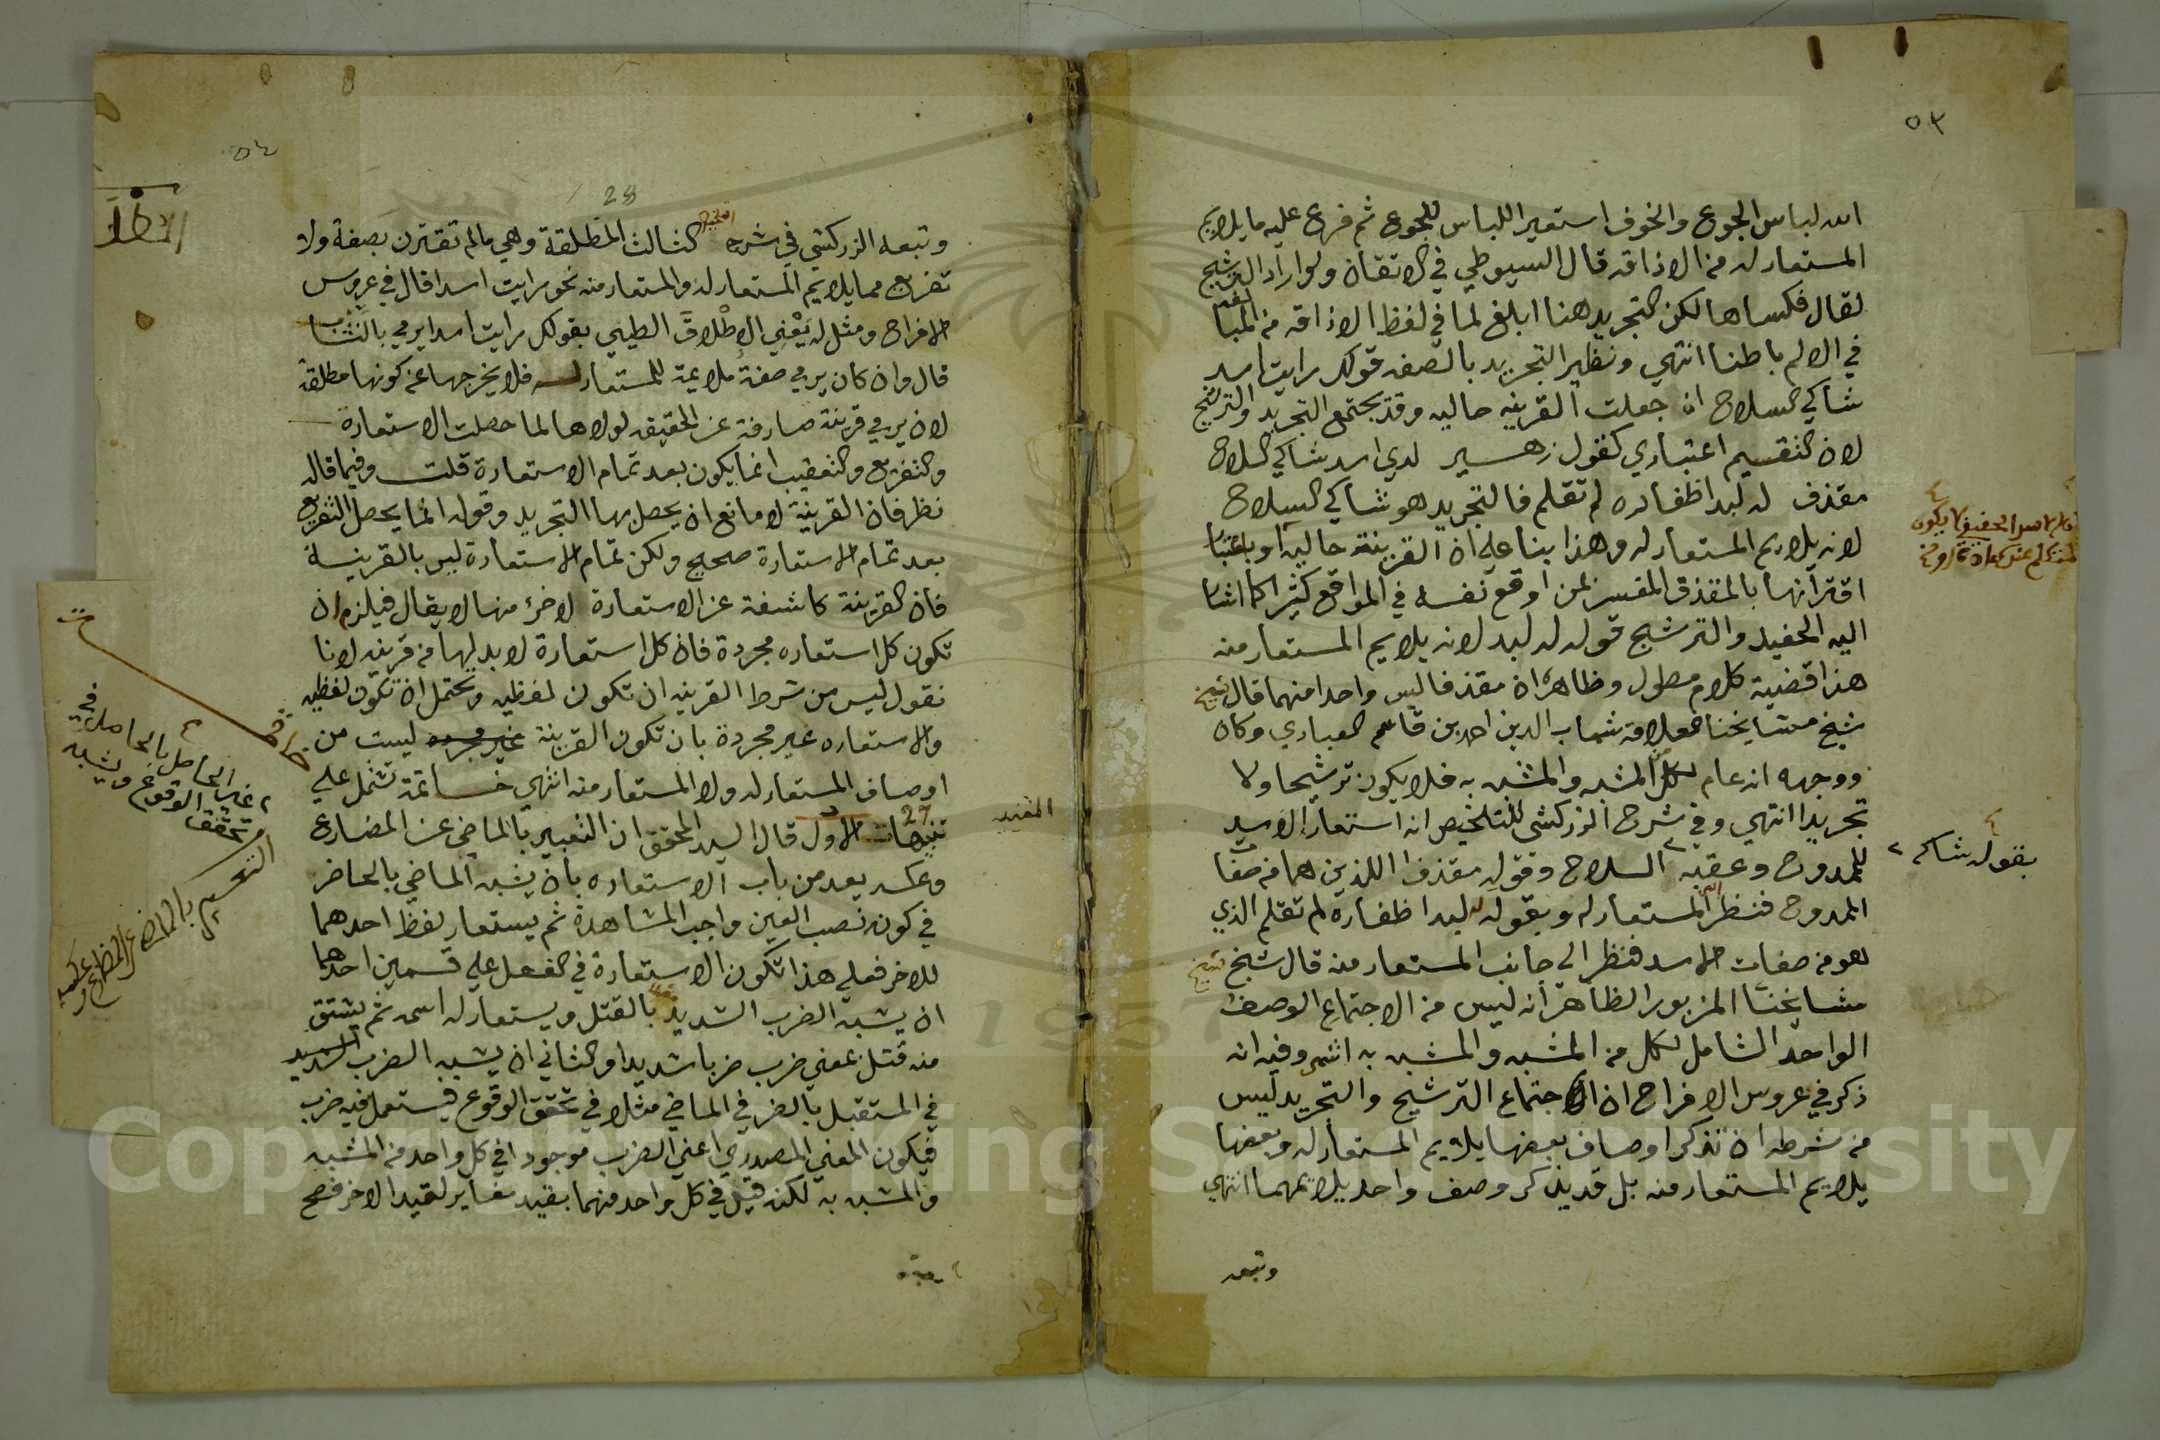 ٥٣
الله لباس الجوع والخوف استعير اللباس للجوع ثم فرع عليه ما يلايم
المستعار له من الاذاقه قال السيوطي في الاتقان ولو اراد الترشيح
لقال فكساها لكن التجريد هنا ابلغ لما في لفظ الاذاقه من المبالغة
في الالم باطنا انتهي ونظير التجريد بالصفه قولك رايت اسد
شاكي السلاح ان جعلت القرينه حاليه وقد يجتمع التجريد والترشيح
لان التقسيم اعتباري كقول زهير لدي اسد شاكي السلاح
مقذف له لبد اظفاره لم تقلم فالتجريد هو شاكي السلاح
لانه يلايم المستعار له وهذا بنا علي ان القرينة حالية او باعتبار
اقترانها بالمقذف المفسر بمن اوقع نفسه في المواقع كثيرا كما اشار
اليه الحفيد والترشيح قوله له لبد لانه يلايم المستعار منه
هذا قضية كلام مطول وظاهره ان مقذفا ليس واحدا منهما قال شيخ
شيخ مشايخنا العلامة شهاب الدين احمد بن قاسم العبادي وكان
ووجهه انه عام لكل المشبه والمشبه به فلا يكون ترشيحا ولا
تجريدا انتهي وفي شرح الزركشي للتلخيص انه استعار الاسد
للممدوح وعقبه السلاح وقوله مقذف اللذين هما من صفات
بقوله شاكي
الممدوح فنظر الي المستعار له وبقوله له لبد اظفاره لم تقلم الذي
هو من صفات الاسد فنظر الي جانب المستعار منه قال شيخ شيخ
مشايخنا المزبور الظاهر أنه ليس من الاجتماع الوصف
الواحد الشامل لكل من المشبه والمشبه به انتهي وفيه انه
ذكر في عروس الافراح ان اجتماع الترشيح والتجريد ليس
من شرطه ان تذكر اوصاف بعضها يلايم المستعار له وبعضها
يلايم المستعار منه بل قد يذكر وصف واحد يلايمهما انتهي
وتبعه
٥٤
28
وتبعه الزركشي في شرح التلخيص الثالث المطلقة وهي ما لم تقترن بصفة ولا
تفريع مما يلايم المستعار له والمستعار منه نحو رايت اسدا قال في عروس
الافراح ومثل له يعني الإطلاق الطيبي بقولك رايت اسدا يرمي بالنشاب
قال وان كان يرمي صفة ملايمة للمستعار له فلا يخرجها عن كونها مطلقة
لان يرمي قرينة صارفة عن الحقيقه لولاها لما حصلت الاستعارة
والتفريع والتعقيب انما يكون بعد تمام الاستعارة قلت وفيما قاله
نظر فان القرينة لا مانع ان يحصل بها التجريد وقوله انما يحصل التفريع
بعد تمام الاستعارة صحيح ولكن تمام الاستعارة ليس بالقرينة
فان القرينة كاشفة عن الاستعارة لا جزء منها لا يقال فيلزم ان
تكون كل استعاره مجردة فان كل استعارة لا بد لها من قرينه لانا
نقول ليس من شرط القرينه ان تكون لفظيه ويحتمل ان تكون لفظيه
والاستعاره غير مجردة بان تكون القرينة غير مجرده ليست من
اوصاف المستعار له ولا المستعار منه انتهي خاتمة تشمل علي
27
تنبيهات الاول قال السيد المحقق ان التعبير بالماضي عن المضارع
وعكسه يعد من باب الاستعاره بان يشبه الماضي بالحاضر
في كونه نصب العين واجب المشاهدة ثم يستعار لفظ احدهما
للاخر فعلي هذا تكون الاستعارة في الفعل علي قسمين احدهما
ان يشبه الضرب الشديد بالقتل ويستعار له اسمه ثم يشتق
منه قتل بمعني ضرب ضربا شديدا والثاني ان يشبه الضرب الشديد
في المستقبل بالضرب في الماضي مثلا في تحقق الوقوع فيستعمل فيه ضرب
فيكون المعني المصدري اعني الضرب موجودا في كل واحد من المشبه
والمشبه به لكنه قيد في كل واحد منهما بقيد مغاير لقيد الاخر فصح
غير الحاصل بالحاصل في
تحقق الوقوع ويشبه
التعبير بالماضي عن المضارع وعكسه
1957
Copyright © King Saud University